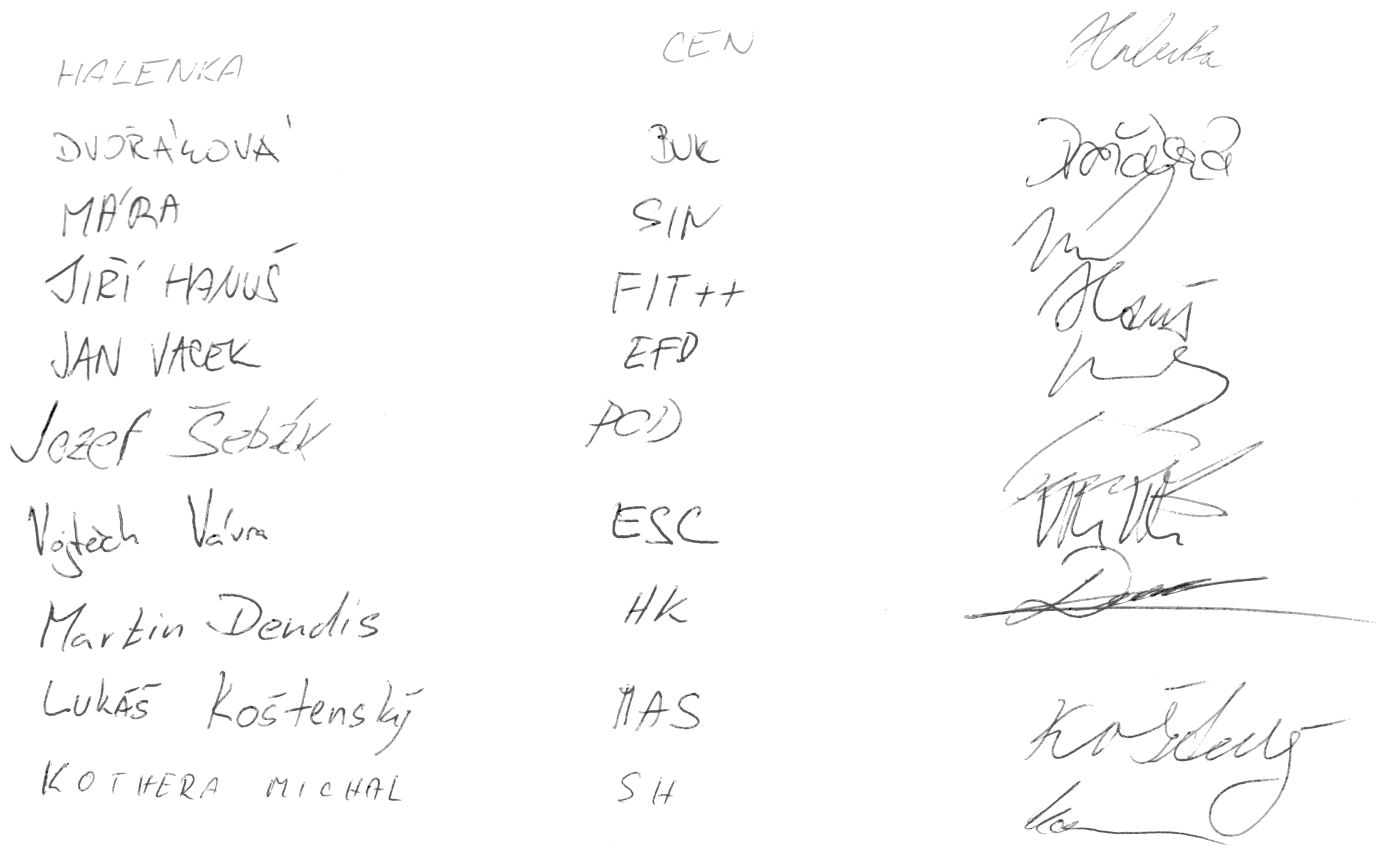 HALENKA CEN Halenka
DVOŘÁKOVÁ BUK
MÁRA SIN
JIŘÍ HANUŠ FIT++ Hanuš
JAN VACEK EFD
Jozef Šebák PCD
Vojtěch Vávra ESC
Martin Dendis HK
LUKÁŠ Koštenský MAS
KOTHERA MICHAL SH